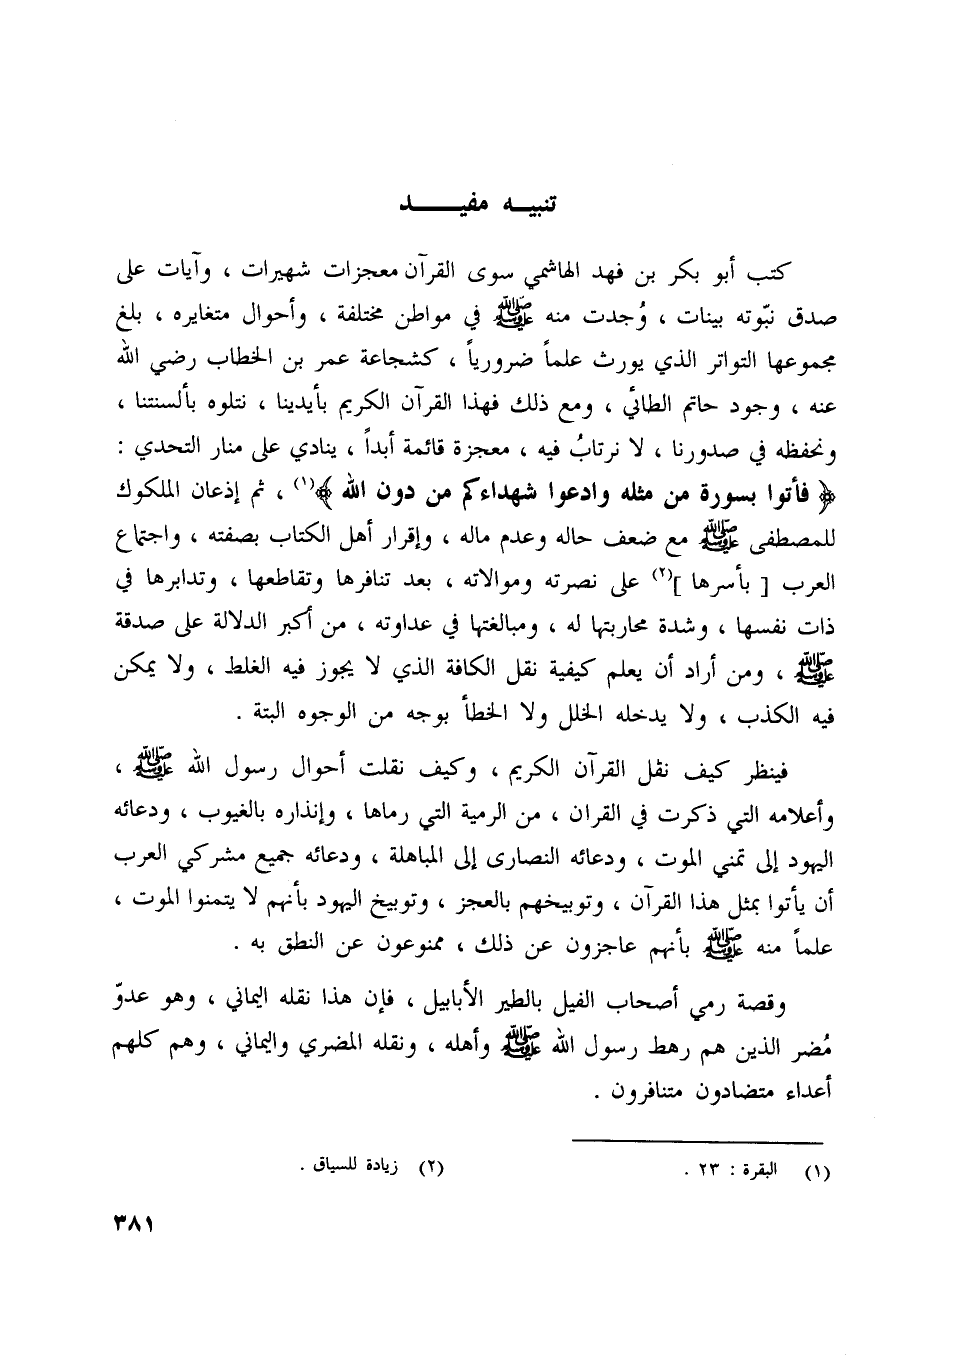 تنبيه مفيد
كتب أبو بكر بن فهد الهاشمي سوى القرآن معجزات شهيرات ، وآيات على
صدق نبّوته بينات ، وُجدت منه ﷺ في مواطن مختلفة ، وأحوال متغايره ، بلغ
مجموعها التواتر الذي يورث علماً ضرورياً ، كشجاعة عمر بن الخطاب رضي الله
عنه ، وجود حاتم الطائي ، ومع ذلك فهذا القرآن الكريم بأيدينا ، نتلوه بألسنتنا ،
ونحفظه في صدورنا ، لا نرتابُ فيه ، معجزة قائمة أبداً ، ينادي على منار التحدي :
﴿ فأتوا بسورة من مثله وادعوا شهداءكم من دون الله ﴾(١) ، ثم إذعان الملكوك
للمصطفى ﷺ مع ضعف حاله وعدم ماله ، وإقرار أهل الكتاب بصفته ، واجتماع
العرب [ بأسرها ](٢) على نصرته وموالاته ، بعد تنافرها وتقاطعها ، وتدابرها في
ذات نفسها ، وشدة محاربتها له ، ومبالغتها في عداوته ، من أكبر الدلالة على صدقة
ﷺ ، ومن أراد أن يعلم كيفية نقل الكافة الذي لا يجوز فيه الغلط ، ولا يمكن
فيه الكذب ، ولا يدخله الخلل ولا الخطأ بوجه من الوجوه البتة .
فينظر كيف نقل القرآن الكريم ، وكيف نقلت أحوال رسول الله ﷺ ،
وأعلامه التي ذكرت في القران ، من الرمية التي رماها ، وإنذاره بالغيوب ، ودعائه
اليهود إلى تمني الموت ، ودعائه النصارى إلى المباهلة ، ودعائه جميع مشركي العرب
أن يأتوا بمثل هذا القرآن ، وتوبيخهم بالعجز ، وتوبيخ اليهود بأنهم لا يتمنوا الموت ،
علماً منه ﷺ بأنهم عاجزون عن ذلك ، ممنوعون عن النطق به .
وقصة رمي أصحاب الفيل بالطير الأبابيل ، فإن هذا نقله اليماني ، وهو عدوّ
مُضر الذين هم رهط رسول الله ﷺ وأهله ، ونقله المضري واليماني ، وهم كلهم
أعداء متضادون متنافرون .
(١) البقرة : ٢٣ . (٢) زيادة للسياق .
٣٨١